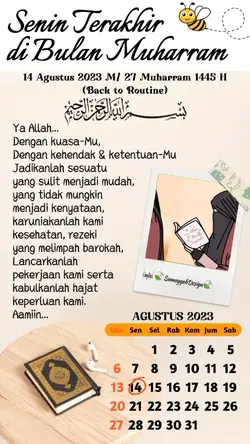 Senin Terakhir
di Bulan Muharram
14 Agustus 2023 M/ 27 Muharram 1445 H
(Back to Routine)
بسم الله الرحمن الرحيم
Ya Allah...
Dengan kuasa-Mu,
Dengan kehendak & ketentuan-Mu
Jadikanlah sesuatu
yang sulit menjadi mudah,
yang tidak mungkin
menjadi kenyataan,
karuniakanlah kami
kesehatan, rezeki
yang melimpah barokah,
Lancarkanlah
pekerjaan kami serta
kabulkanlah hajat
keperluan kami.
Aamiin...
AGUSTUS 2023
Min Sen Sel Rab Kam Jum Sab
1 2 3 4 5
6 7 8 9 10 11 12
13 14 15 16 17 18 19
20 21 22 23 24 25 26
27 28 29 30 31